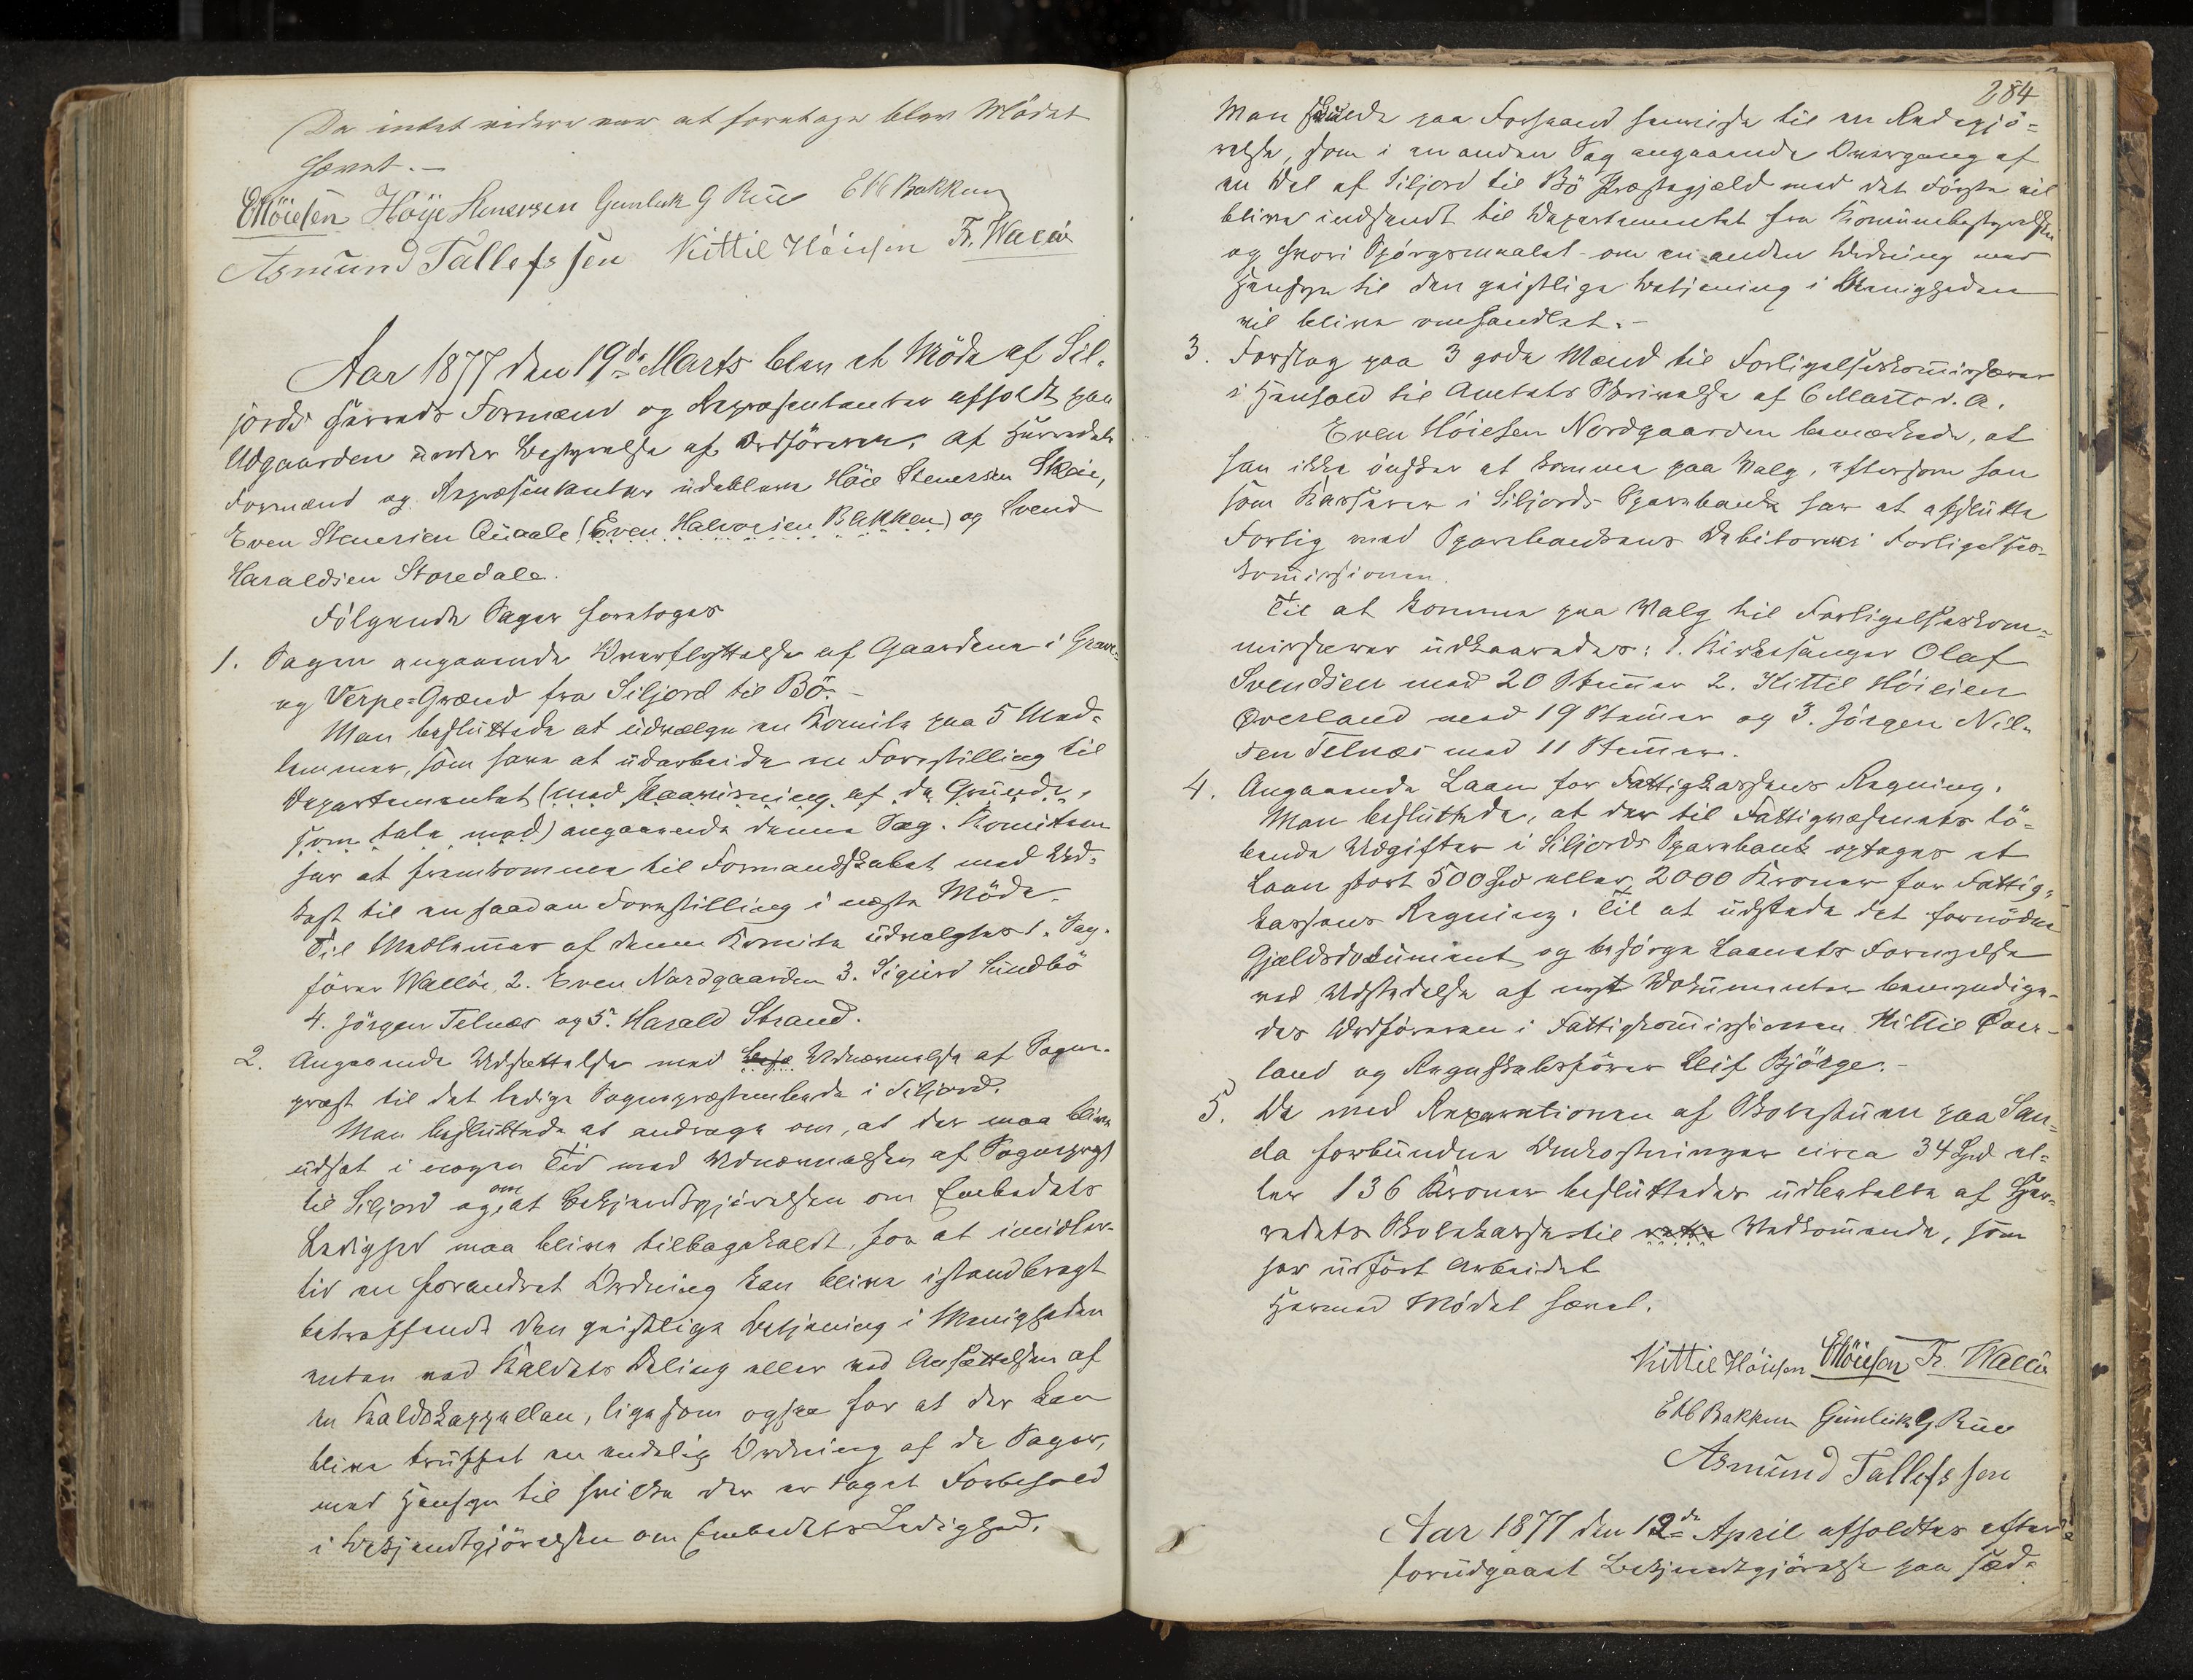 Da intet videre var at foretage blev Mödet
hævet.-
EHöiesen Höye Stenersen Gunleik G Rue EHBakken
Asmund Tallefssen Kittil Höiesen Fr. Walløe
Aar 1877 den 19de Marts blev et Möde af Sil-
jords Herreds Formænd og Repræsentanter afholdt paa
Udgaarden under Bestyrelse af Ordföreren. Af Herredets
Formænd og Repræsentanter udebleve Höie Stenersen Skeie,
Even Stenersen Qvaale (Even Halvorsen Bakken) og Svend
Haraldsen Storedale.
Fölgende Sager foretoges
1. Sagen angaaende Overflyttelse af Gaardene i Grave-
og Verpe-Grænd fra Siljord til Bö.-
Man besluttede at udvælge en Komite paa 5 Med-
lemmer, som have at udarbeide en Forestilling til
Departementet (med Paavisning af de Grunde,
som tale med) angaaende denne Sag. Komiteen
har at fremkomme til Formandskabet med Ud-
kast til en saadan Forestilling i næste Möde.
Til Medlemmer af denne Komite udvalgtes 1. Sag-
förer Wallöe, 2. Even Nordgaarden 3. Sigurd Sundbö
4. Jörgen Telnæs og 5. Harald Strand.
2. Angaaende Udsættelse med Udnævnelse af Sogne-
præst til det ledige Sognepræstembede i Siljord.
Man besluttede at andrage om, at der maa blive
udsat i nogen Tid med Udnævnelsen af Sogneprest
til Siljord og om at Bekjendtgjörelsen om Embedets
Ledighed maa blive tilbagekaldt, for at imidler-
tid en forandret Ordning kan blive istandbragt
betræffende den geistlige Betjening i Menigheden
enten ved Kaldets Deling eller ved Ansættelsen af
en Kaldskappellan, ligesom ogsaa for at der kan
blive truffet en endelig Ordning af de Sager,
med Hensyn til hvilke der er taget Forbehold
i Bekjendtgjörelsen om Embedets Ledighed.
284
Man skulde paa Forhaand henvise til en Redegjö-
relse, som i en anden Sag angaaende Overgang af
en Del af Siljord til Bö Præstegjæld med det Förste vil
blive indsendt til Departementet fra Kommunebestyrelsen
og hvori Spörgsmaalet om en anden Ordning med
Hensyn til den geistlige Betjening i Menigheden
vil blive omhandlet.-
3. Forslag paa 3 gode Mænd til Forligelseskommissærer
i Henhold til Amtets Skrivelse af 6 Marts d. A.
Even Höiesen Nordgaarden bemærkede, at
han ikke önsker at komme paa Valg, eftersom han
som Kasserer i Siljords Sparebank har at afslutte
Forlig med Sparebankens Debitorer i Forligelses-
kommissionen.
Til at komme paa Valg til Forligelseskom-
missærer udkaaredes: 1. Kirkesanger Olaf
Svendsen med 20 Stemmer 2. Kittil Höiesen
Överland med 19 Stemmer og 3. Jörgen Nil-
sen Telnæs med 11 Stemmer.
4. Angaaende Laan for Fattigkassens Regning.
Man besluttede, at der til Fattigvæsenets lö-
bende Udgifter i Siljords Sparebank optages et
Laan stort 500 Spd eller 2000 Kroner for Fattig-
kassens Regning. Til at udstede det fornödne
Gjældsdokument og besörge Laanets Fornyelse
ved Udstedelse af nyt Dokumenter bemyndige-
des Ordföreren i Fattigkommissionen Kittil Över-
land og Regnskabsförer Leif Björge.-
5. De med Reparationen af Skolestuen paa San-
da forbundne Omkostninger circa 34 Spd el-
ler 136 Kroner besluttedes udbetalte af Her-
redets Skolekasse til rette Vedkommende, som
har udfört Arbeidet
Hermed Mödet hævet.
Kittil Höiesen EHöiesen Fr. Walløe
EHBakken Gunleik G Rue
Asmund Tallefssen
Aar 1877 den 12de April afholdtes efter
forudgaaet Bekjendtgjörelse paa sæd-